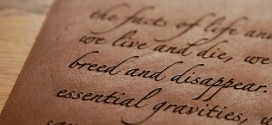 the facts of life and
we live and die, we
breed and disappear.
essential gravities, w